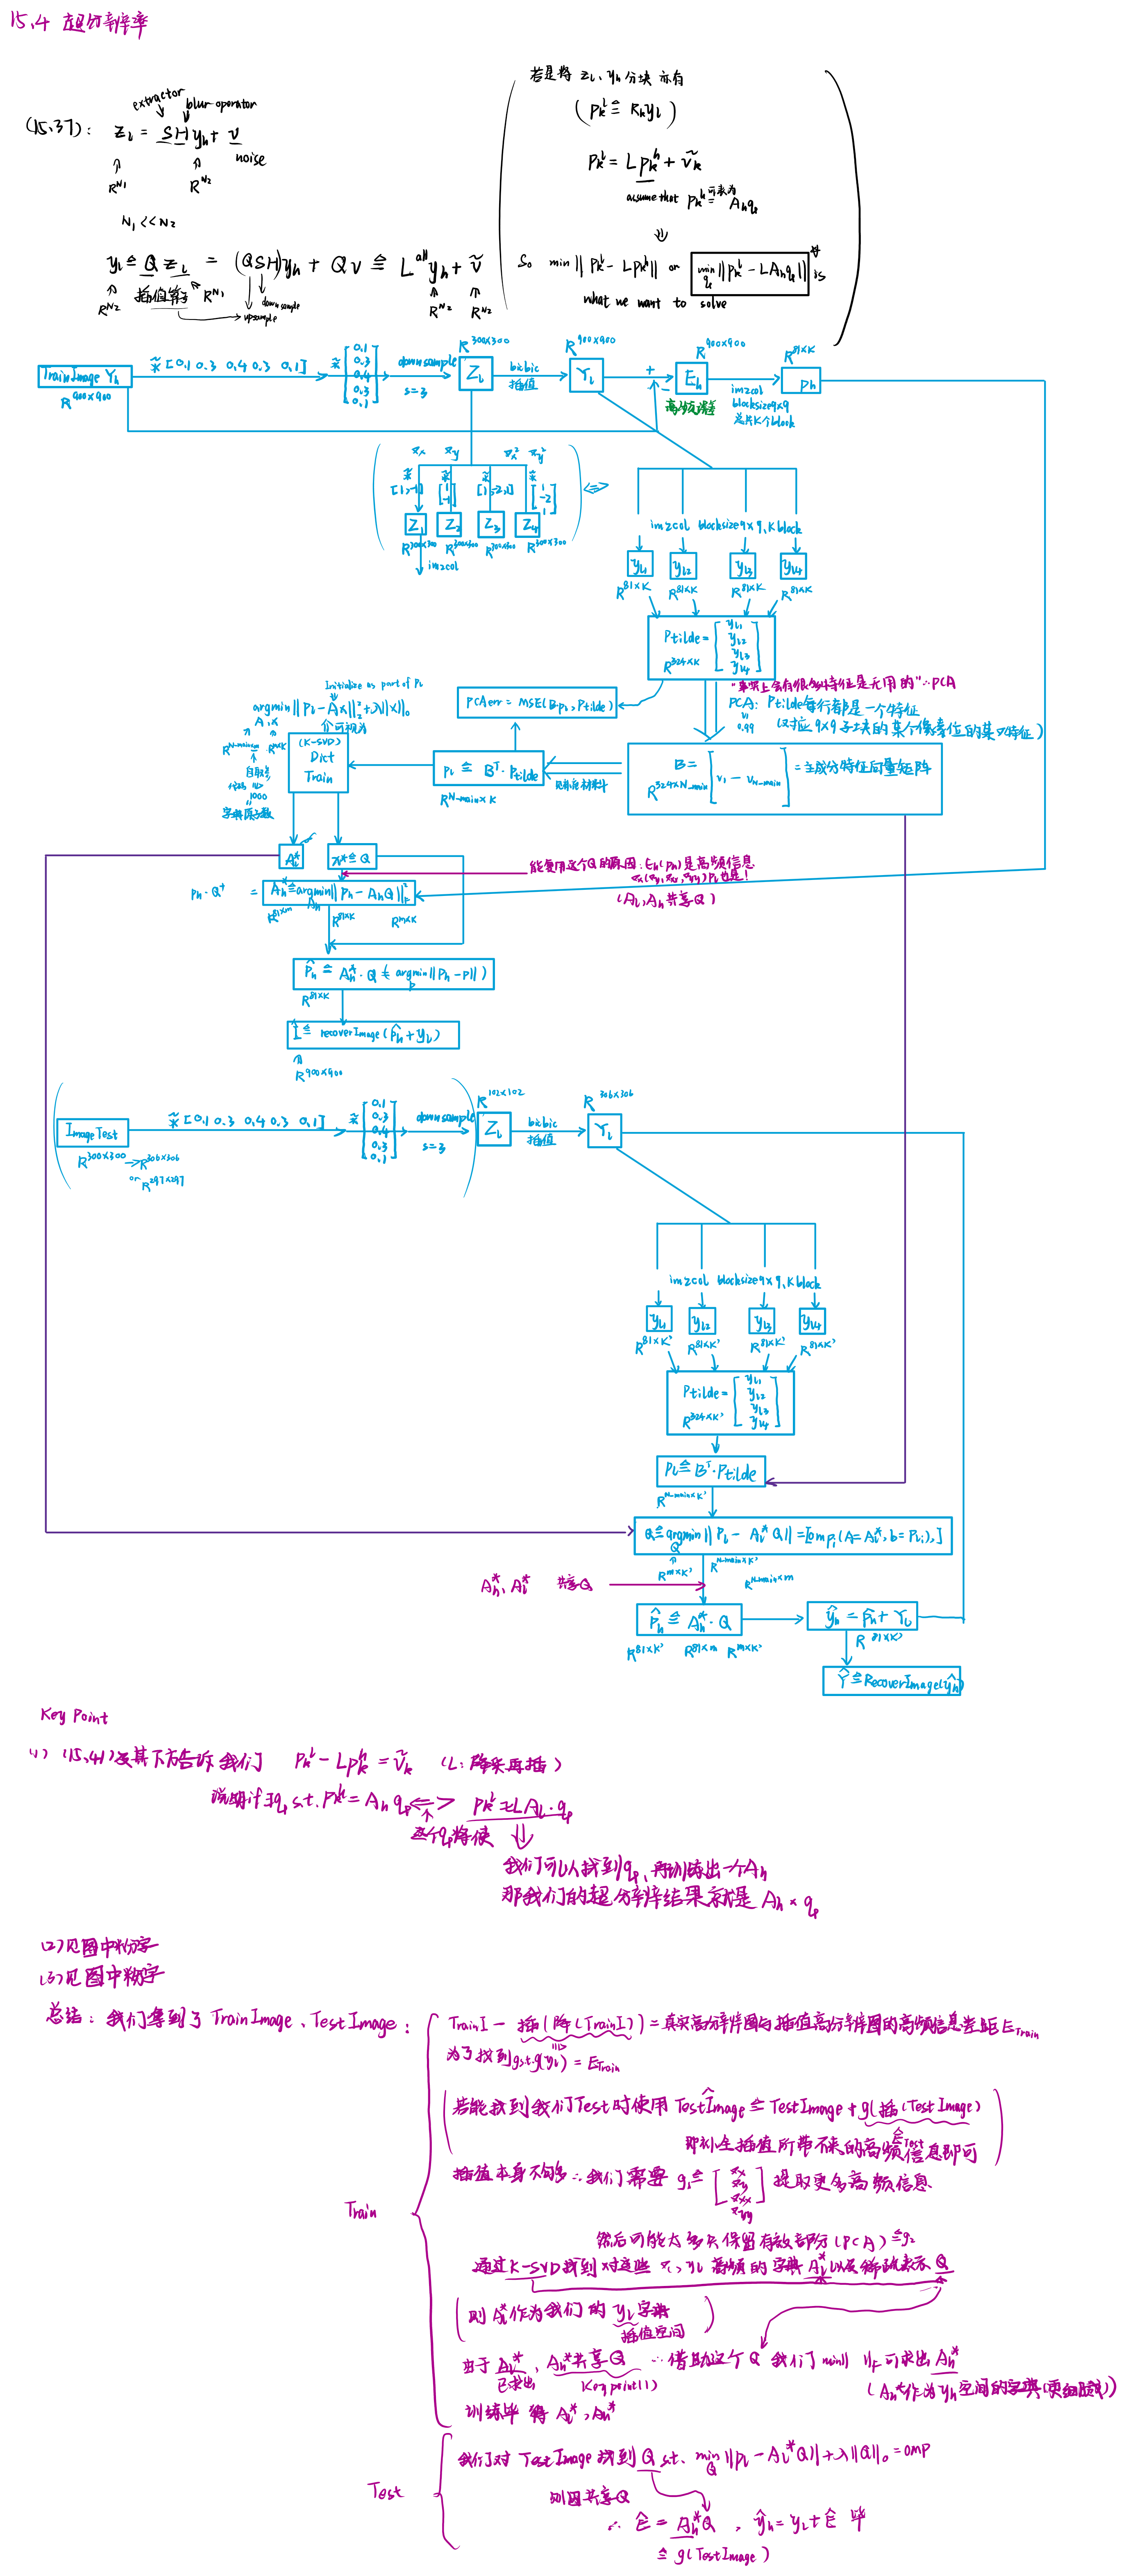 15.4 超分辨率
extractor
blur operator
(15.37): z_l = SH y_h + v
noise
R^N1 R^N2
N1 << N2
y_l ≜ Q z_l = (QSH) y_h + Qv ≜ L^all y_h + ṽ
R^N2 插值算子 R^N1 downsample
upsample
R^N2 R^N2
若是将 z_l、y_h 分块 亦有
(p_k^l ≜ R_k y_l)
p_k^l = L p_k^h + ṽ_k
assume that p_k^h 可表为 = A_h q_k
⇓
So min || p_k^l - L p_k^h || or min || p_k^l - L A_h q_k || is
what we want to solve
Train Image Y_h
R^900×900
* [0.1 0.3 0.4 0.3 0.1]
* [0.1 0.3 0.4 0.3 0.1]
downsample
s=3
R^300×300
Z_l
bicbic
插值
R^900×900
Y_l
+ -
R^900×900
E_h
im2col
blocksize 9×9
总共K个block
R^81×K
P_h
∇x ∇y ∇x² ∇y²
[1,-1] [1 -1] [1,-2,1] [1 -2 1]
Z1 Z2 Z3 Z4
R^300×300 R^300×300 R^300×300 R^300×300
im2col
<=>
im2col blocksize 9×9, K block
y_l1 y_l2 y_l3 y_l4
R^81×K R^81×K R^81×K R^81×K
Ptilde = [y_l1 y_l2 y_l3 y_l4]
R^324×K
"事实上会有很多特征是无用的" ∴ PCA
PCA: Ptilde每行都是一个特征
0.99
(对应 9×9 子块的某个像素位的某∇特征)
Initialize as part of P_l
argmin || P_l - A X ||₂² + λ||X||₀
A, X
R^N-main×m R^m×K
自取
1000
字典原子数
(K-SVD)
Dict
Train
PCAerr = MSE(B·P_l, Ptilde)
P_l ≜ B^T · Ptilde
R^N-main×K
B = [v1 - v_N-main] = 主成分特征向量矩阵
R^324×N-main
A_l*
X* ≜ Q
能复用这个Q的原因: E_h(P_h)是高频信息
∇x(∇y, ∇xx, ∇yy) P_l也是!
(A_l, A_h 共享Q)
P_h · Q⁺ = A_h* ≜ argmin || P_h - A_h Q ||_F²
A_h
R^81×m R^81×K R^m×K
P̂_h ≜ A_h* · Q (≠ argmin || P_h - P ||)
R^81×K
Î ≜ recoverImage(P̂_h + y_l)
R^900×900
Image Test
R^300×300 → R^306×306
or R^297×297
* [0.1 0.3 0.4 0.3 0.1]
* [0.1 0.3 0.4 0.3 0.1]
downsample
s=3
R^102×102
Z_l
bicbic
插值
R^306×306
Y_l
im2col blocksize 9×9, K block
y_l1 y_l2 y_l3 y_l4
R^81×K' R^81×K' R^81×K' R^81×K'
Ptilde = [y_l1 y_l2 y_l3 y_l4]
R^324×K'
P_l ≜ B^T · Ptilde
R^N-main×K'
Q ≜ argmin || P_l - A_l* Q || = [omp_i(A=A_l*, b=P_li),]
Q
R^m×K' R^N-main×K' R^N-main×m
A_h*, A_l* 共享Q
P̂_h ≜ A_h* · Q
R^81×K' R^81×m R^m×K'
ŷ_h = P̂_h + Y_l
R^81×K'
Ŷ ≜ RecoverImage(ŷ_h)
Key Point
(1) (15.41)及其下方告诉我们 p_k^l - L p_k^h = ṽ_k (L: 降采再插)
说明 if ∃q_k s.t. p_k^h = A_h q_k <=> p_k^l = L A_h · q_k
这个q_k将使 ⇓
我们可以找到q_k, 再训练出一个A_h
那我们的超分辨结果就是 A_h × q_k
(2) 见图中粉字
(3) 见图中粉字
总结: 我们拿到了 Train Image、Test Image:
Train
Train I - 插(降(Train I)) = 真实高分辨图与插值高分辨图的高频信息差距 E_Train
为了找到 g s.t. g(y_l) = E_Train
若能找到我们Test时使用 Test Image ≜ Test Image + g(插(Test Image))
Ê_Test
即补全插值所带不来的高频信息即可
插值本身不够 ∴ 我们需要 g₁ ≜ [∇x ∇y ∇xx ∇yy] 提取更多高频信息
然后可能太多只保留有效部分(PCA) ≜ g₂
通过K-SVD找到对这些 高频的字典 A_l* 以及稀疏表示 Q
(则 A_l*作为我们的 y_l 字典)
插值空间
由于 A_l*、A_h*共享Q ∴ 借助这个Q 我们 min|| ||_F 可求出 A_h*
已求出 Key point(1)
(A_h*作为y_h空间的字典
训练毕 得 A_l*, A_h*
Test
我们对 Test Image 找到 Q s.t. min || P_l - A_l* Q || + λ||Q||₀ = OMP
Q
则因共享Q
∴ Ê = A_h* Q , ŷ_h = y_l + Ê 毕
≜ g(Test Image)